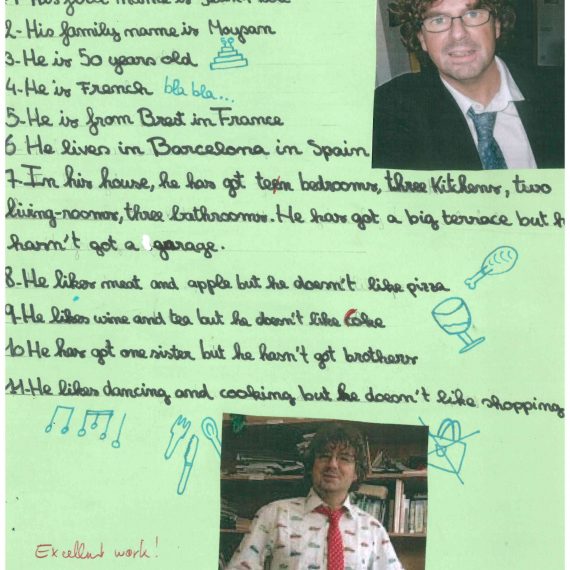 2- His family name is Moysan
3- He is 50 years old
4- He is French bla bla...
5- He is from Brest in France
6 He lives in Barcelona in Spain
7. In his house, he has got ten bedrooms, three kitchens, two
living-rooms, three bathrooms. He has got a big terrace but h
hasn't got a garage.
8- He likes meat and apple but he doesn't like pizza
9- He likes wine and tea but he doesn't like Coke
10 He has got one sister but he hasn't got brothers
11- He likes dancing and cooking but he doesn't like shopping
Excellent work!